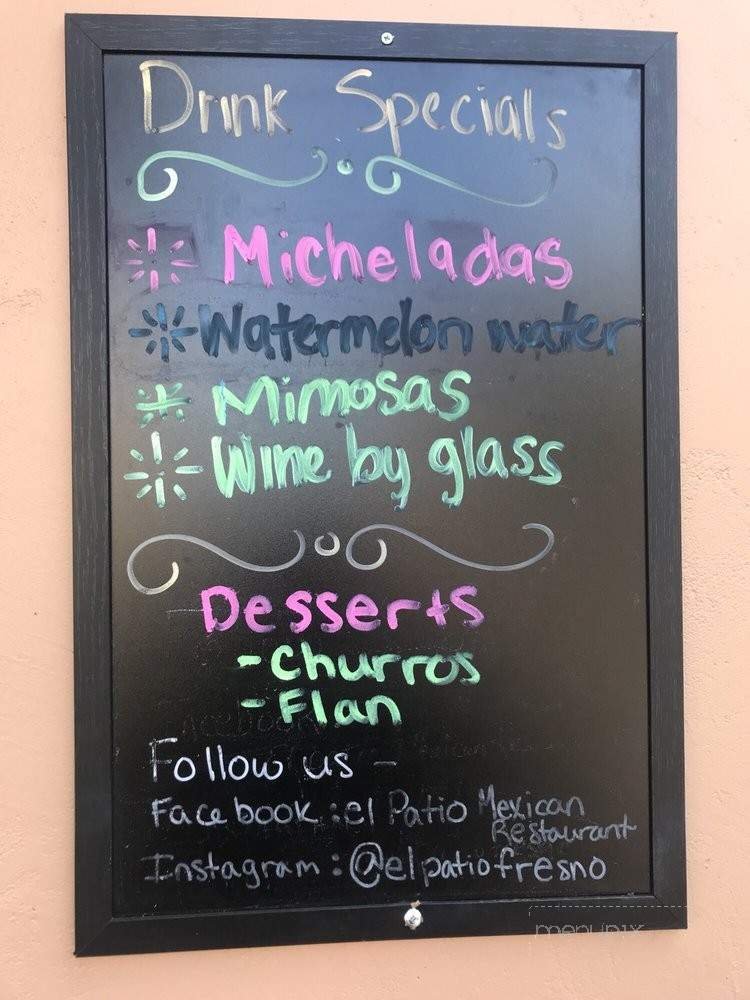 Drink Specials
Micheladas
Watermelon water
Mimosas
Wine by glass
Desserts
- Churros
- Flan
Follow us -
Facebook : el Patio Mexican
Restaurant
Instagram : @elpatiofresno
menupix